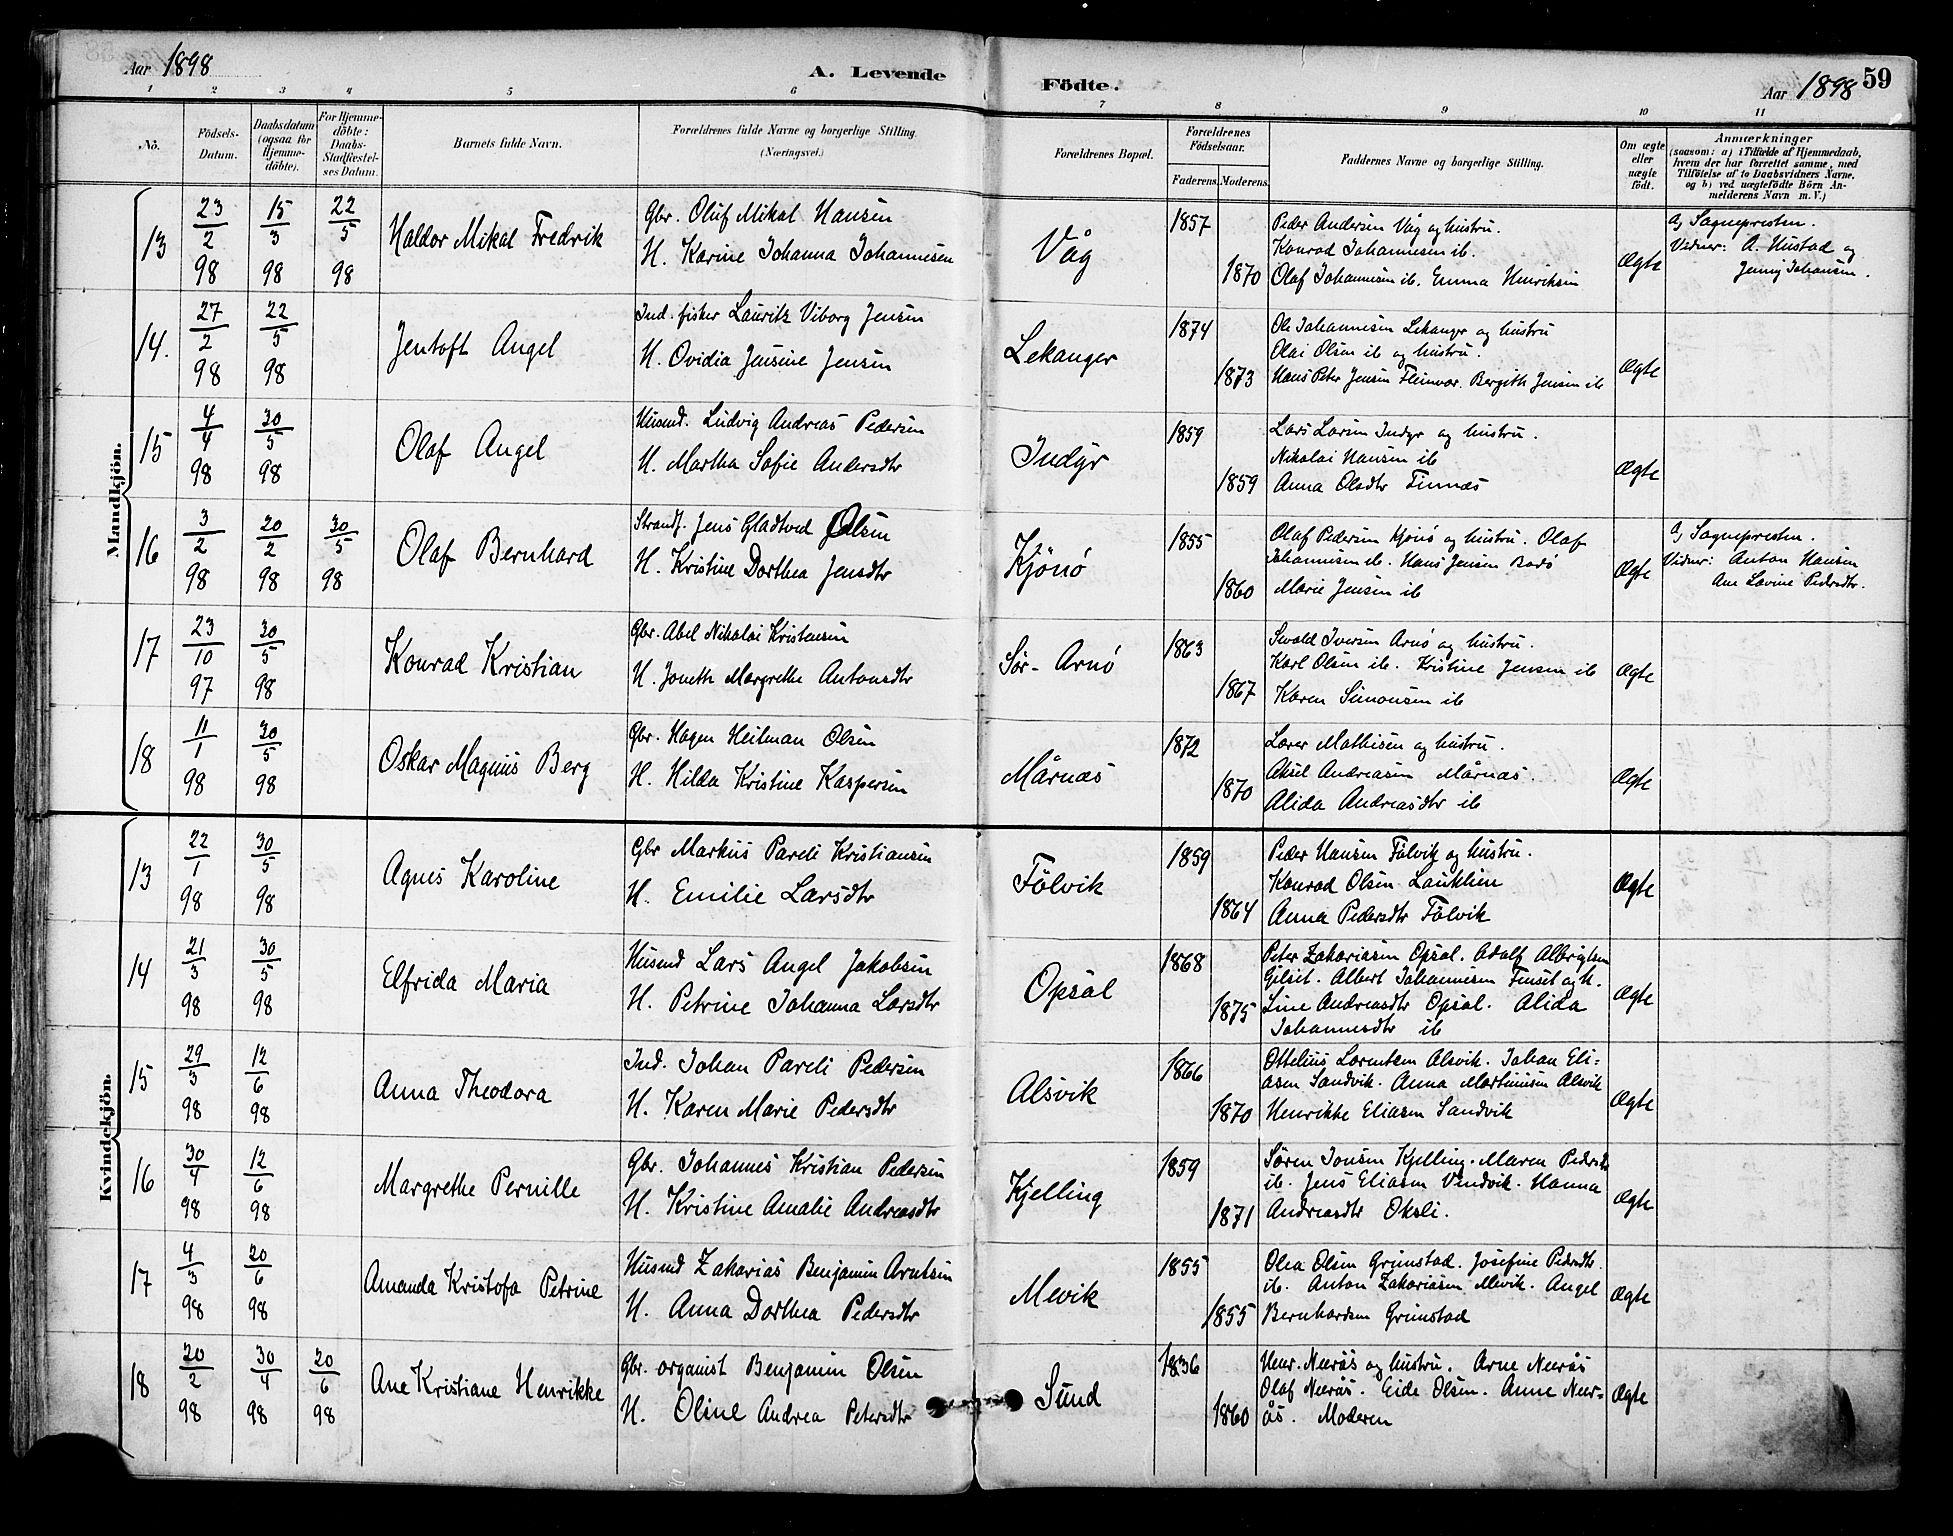 Aar 1898
A. Levende
Födte.
Aar 1898
59
1 2 3 4 5 6 7 8 9 10 11
Nô.
Födsels-
Datum.
Daabsdatum
(ogsaa for
Hjemme-
döbte).
For Hjemme-
döbte:
Daabs-
Stadfæstel-
ses Datum.
Barnets fulde Navn.
Forældrenes fulde Navne og borgerlige Stilling.
(Næringsvei.)
Forældrenes Bopæl.
Forældrenes
Födselsaar.
Faderens. Moderens.
Faddernes Navne og borgerlige Stilling.
Om ægte
eller
uægte
födt.
Anmærkninger
(saasom: a) i Tilfælde af Hjemmedaab,
hvem der har forrettet samme, med
Tilföielse af to Daabsvidners Navne.
og b) ved uægtefödte Börn An-
melderens Navn m. V.)
Mandkjön.
13
23/2 98
15/3 98
22/5 98
Haldor Mikal Fredrik
Gbr. Oluf Mikal Hansen
H. Karine Johanna Johannesen
Våg
1857
1870
Peder Andersen Våg og hustru.
Konrad Johannesen ib.
Olaf Johannesen ib. Emma Henriksen
Ægte
a) Sognepresten.
Vidner: A. Hustad og
Jenny Johansen.
14.
27/2 98
22/5 98
Jentoft Angel
Ind. fisker Lauritz Viborg Jensen
H. Ovidia Jensine Jensen
Lekanger
1874
1873
Ole Johannesen Lekanger og hustru
Olai Olsen ib og hustru.
Hans Peter Jensen Fleinvær. Bergith Jensen ib
Ægte
15
4/4 98
30/5 98
Olaf Angel
Husmd. Ludvig Andreas Pedersen
H. Martha Sofie Andersdtr
Indyr
1859
1859
Lars Larsen Indyr og hustru.
Nikolai Hansen ib
Anna Olsdtr Finnæs
Ægte
16
3/2 98
20/2 98
30/5 98
Olaf Bernhard
Strands. Jens Gladtved Olsen
H. Kristine Dorthea Jensdtr
Kjönö
1855
1860
Olaf Pedersen Kjönö og hustru. Olaf
Johannesen ib. Hans Jensen Bodö
Marie Jensen ib
Ægte
a) Sognepresten.
Vidner: Anton Hansen
Ane Lovine Pedersdtr.
17
23/10 97
30/5 98
Konrad Kristian
Gbr. Abel Nikolai Kristensen
H. Joneth Margrethe Antonsdtr
Sör-Arnö
1863
1867
Sevald Iversen Arnö og hustru.
Karl Olsen ib. Kristine Jensen ib
Karen Simonsen ib
Ægte
18
11/1 98
30/5 98
Oskar Magnus Berg
Gbr. Hagen Heitman Olsen
H. Hilda Kristine Kaspersen
Mårnæs
1872
1870
Lærer Mathisen og hustru.
Aksel Andreasen Mårnæs.
Alida Andreasdtr ib
Ægte
Kvindekjön.
13
22/1 98
30/5 98
Agnes Karoline
Gbr Markus Pareli Kristiansen
H. Emilie Larsdtr
Fölvik
1859
1864
Peder Hansen Fölvik og hustru.
Konrad Olsen Lauklien
Anna Pedersdtr Fölvik
Ægte
14
21/3 98
30/5 98
Elfrida Maria
Husmd Lars Angel Jakobsen
H. Petrine Johanna Larsdtr
Opsal
1868
1875
Peter Zakariasen Opsal. Adolf Albrigtsen
Gilset. Albert Johannesen Finset og h.
Line Andreasdtr Opsal. Alida
Johannesdtr ib
Ægte
15
29/3 98
12/6 98
Anna Theodora
Ind. Johan Pareli Pedersen
H. Karen Marie Pedersdtr
Alsvik
1866
1870
Ottelius Lorentsen Alsvik. Johan Eli-
asen Sandvik. Anna Martinusen Alsvik
Henrikke Eliasen Sandvik
Ægte
16
30/4 98
12/6 98
Margrethe Pernille
Gbr. Johannes Kristian Pedersen
H. Kristine Amalie Andreasdtr
Kjelling
1859
1871
Sören Jonsen Kjelling. Maren Pedersdtr
ib. Jens Eliasen Vendvik. Hanna
Andreasdtr Oksli.
Ægte
17
4/3 98
20/6 98
Amanda Kristofa Petrine
Husmd Zakarias Benjamin Arntsen
H. Anna Dorthea Pedersdtr
Mevik
1855
1855
Olea Olsen Grimstad. Josefine Pedersdtr.
ib. Anton Zakariasen Mevik. Angel
Bernhardsen Grimstad
Ægte
18
20/2 98
30/4 98
20/6 98
Ane Kristiane Henrikke
Gbr. organist Benjamin Olsen
H. Oline Andrea Petersdtr
Sund
1836
1860
Henr. Neerås og hustru. Arne Neerås
Olaf Neerås. Eide Olsen. Anne Neer-
ås. Moderen
Ægte